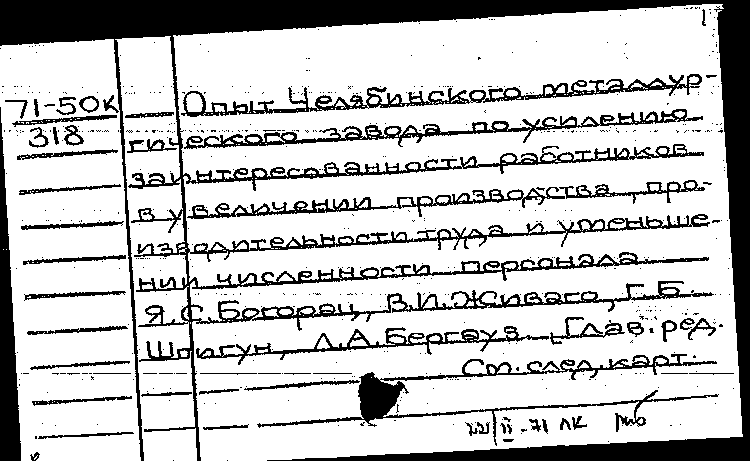 71-50к
318
Опыт Челябинского металлур-
гического завода по усилению
заинтересованности работников
в увеличении производства, про-
изводительности труда и уменьше-
нии численности персонала.
Я.С.Богорац, В.И.Живаго, Г.Б.
Шпигун, Л.А.Бергауз. Глав. ред.
См. след. карт.
II-71 ЛК